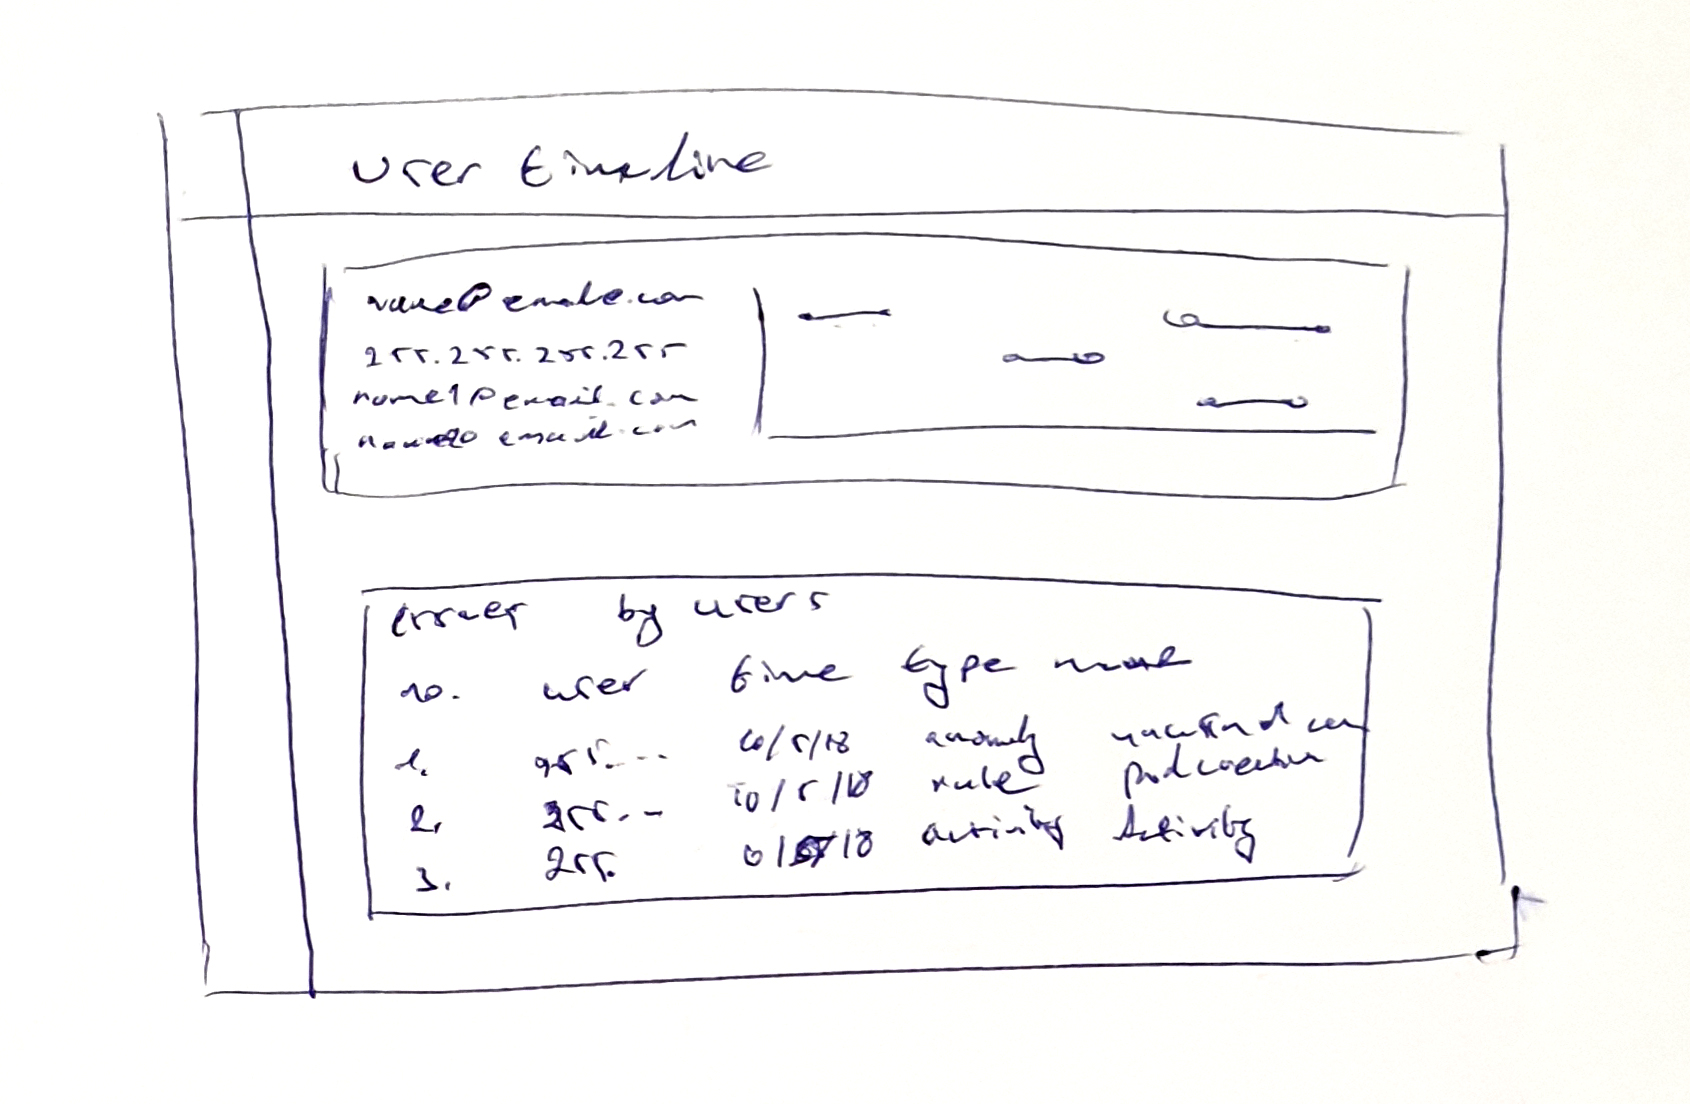 User timeline
name@emale.com
255.255.255.255
name1@email.com
email.com
by users
no. user time type
1. 255.... 10/5/18 anomaly
2. 255... 10/5/18 rule
3. 255. /18 activity Activity